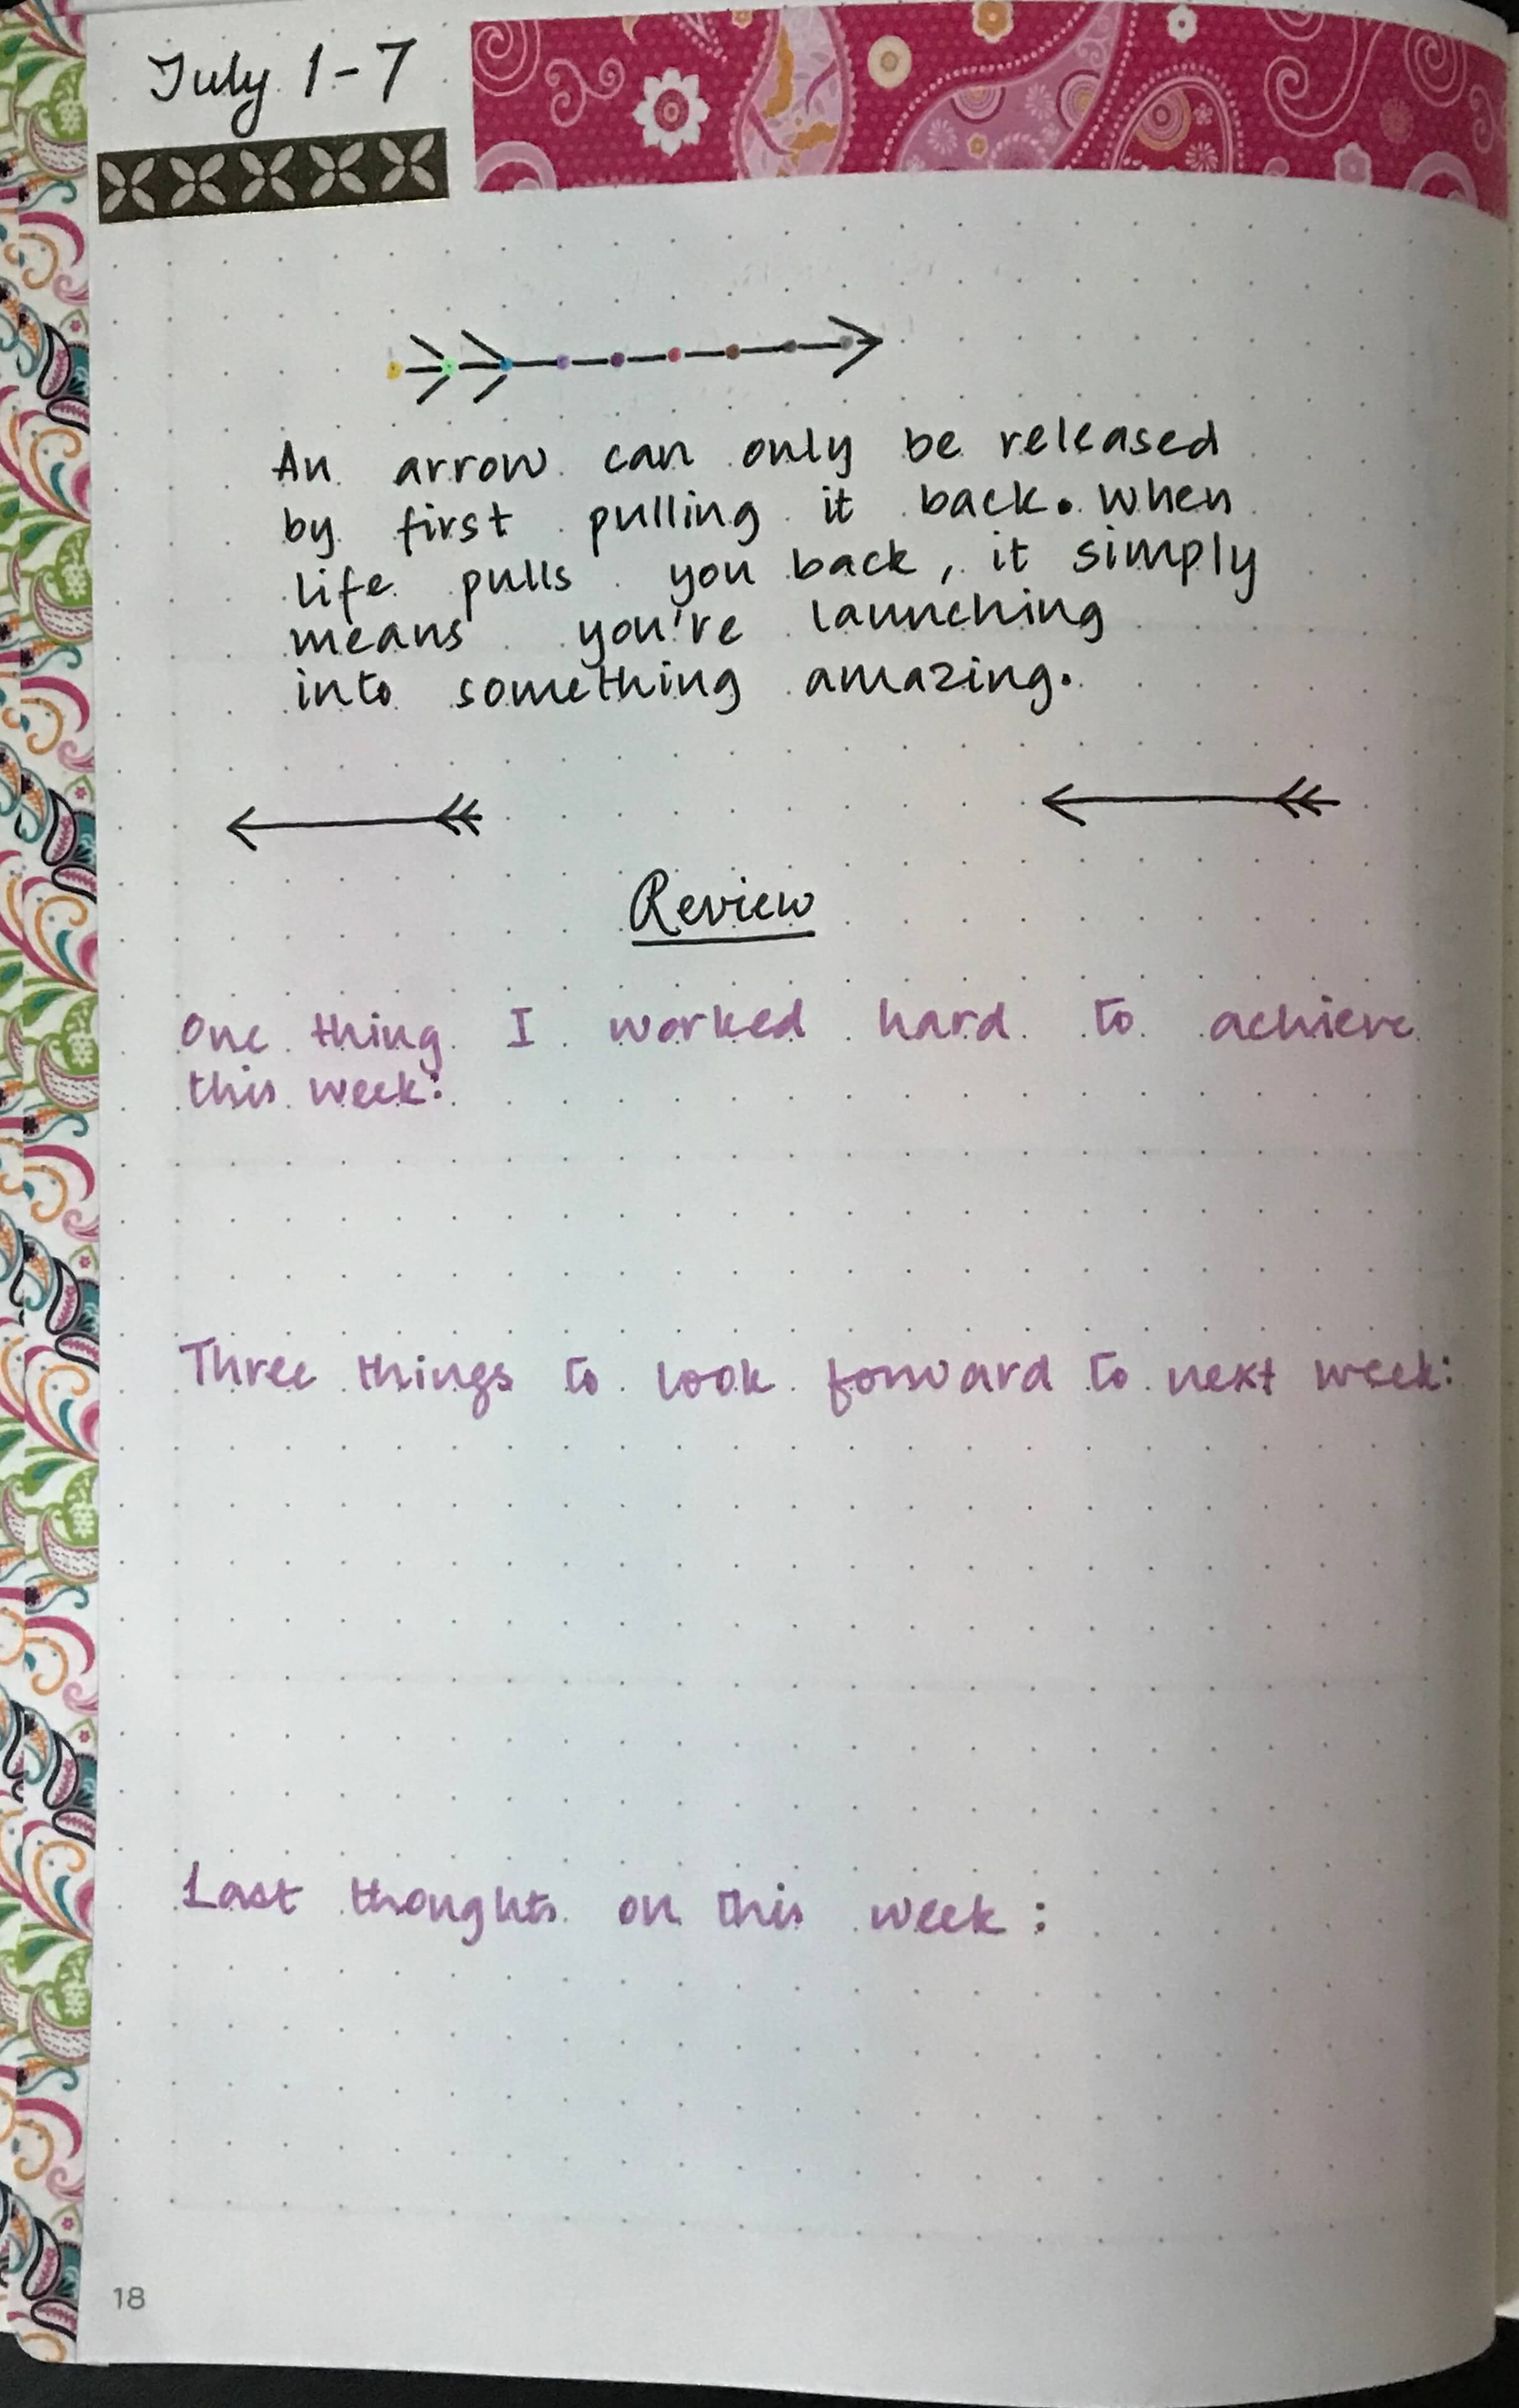 July 1-7
An arrow can only be released
by first pulling it back. When
life pulls you back, it simply
means you're launching
into something amazing.
Review
One thing I worked hard to achieve
this week:
Three things to look forward to next week:
Last thoughts on this week:
18